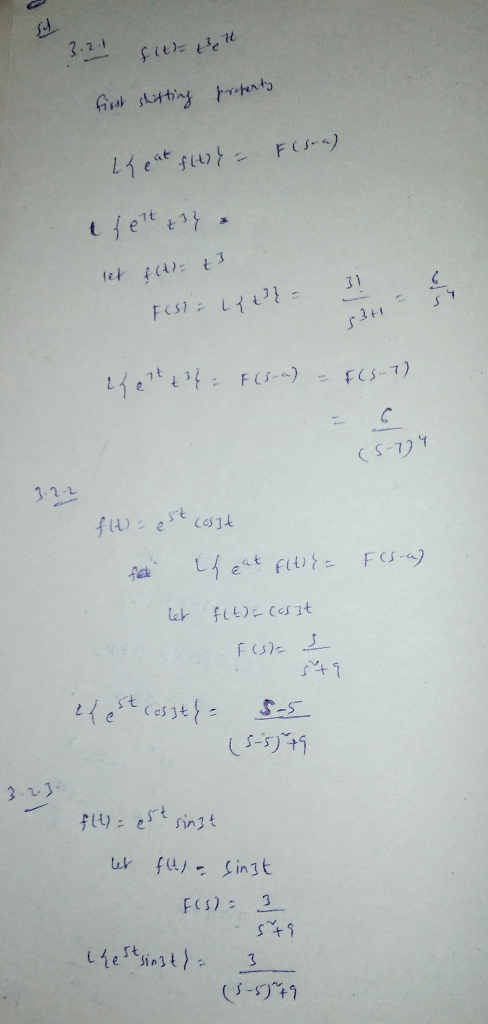 Sol
3.2.1 f(t) = t³e⁷ᵗ
first shifting property
L{eᵃᵗ f(t)} = F(s-a)
L{e⁷ᵗ t³}
let f(t) = t³
F(s) = L{t³} = 3!/s³⁺¹ = 6/s⁴
L{e⁷ᵗ t³} = F(s-a) = F(s-7)
= 6/(s-7)⁴
3.2.2
f(t) = e⁵ᵗ cos3t
L{eᵃᵗ f(t)} = F(s-a)
let f(t) = cos3t
F(s) = s/s²+9
L{e⁵ᵗ cos3t} = s-5/(s-5)²+9
3.2.3
f(t) = e⁵ᵗ sin3t
let f(t) = sin3t
F(s) = 3/s²+9
L{e⁵ᵗ sin3t} = 3/(s-5)²+9